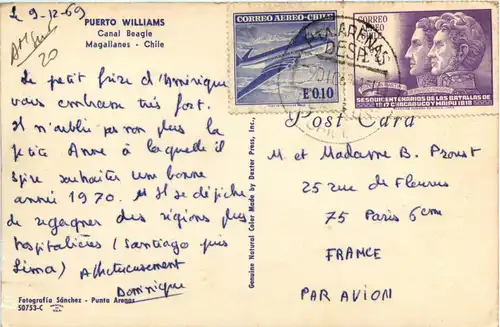 Le 9-12-69
PUERTO WILLIAMS
Canal Beagle
Magallanes - Chile
20
Le petit frère d'Amérique
vous embrasse très fort.
Il n'oublie pas non plus la
petite Anne à laquelle il
souhaiter une bonne
année 1970. et Il se dépêche
de regagner des régions plus
hospitalières (Santiago puis
Lima) Affectueusement
Dominique
Fotografía Sánchez - Punta Arenas
50753-C
Genuine Natural Color Made by Dexter Press, Inc.
CORREO AEREO-CHILE
E°0,10
CORREO
AEREO
SESQUICENTENARIOS DE LAS BATALLAS DE
1817 CHACABUCO Y MAIPU 1818
PTA. ARENAS
DESP.
Post Card
M et Madame B. Proust
25 rue de Fleurus
75 Paris 6em
FRANCE
PAR AVION